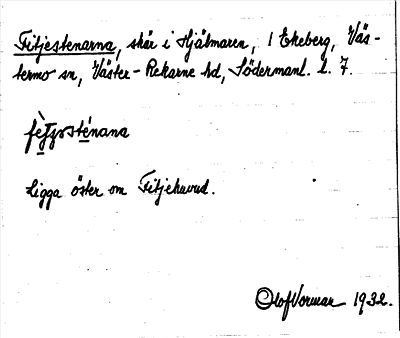 Fitjestenarna, skär i Hjälmaren, 1 Ekeberg, Väs-
termo sn, Väster-Rekarne hd, Södermanl. l. 7.
Ligga öster om Fitjehuvud.
Olof Vorman 1932.